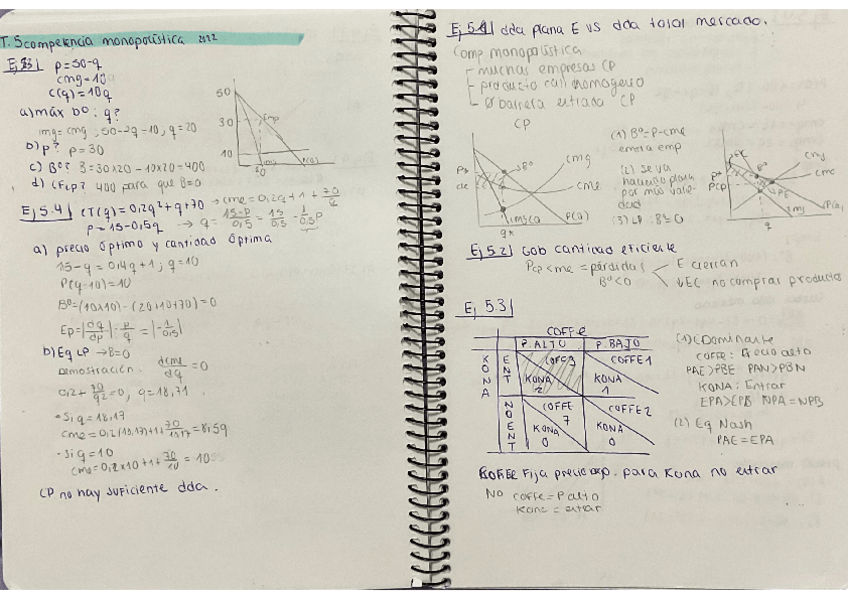 T. 5 competencia monopolística
Ej 
p=50-q
cmg=10
C(q)=10q
a) máx bº: q?
img=cmg, 50-2q=10; q=20
b) p? p=30
c) Bº? B=30x20-10x20=400
d) CFCP? 400 para que B=0
50
30
10
Emp
Ej 5.4 CT(q)=0,2q²+q+70 → cme=0,2q+1+70/q
p=15-0,5q
a) precio óptimo y cantidad óptima
15-q=0,4q+1; q=10
P(q=10)=10
Bº=(10x10)-(20+10+70)=0
Ep=|dq/dp|·p/q=
b) Eq LP → B=0
Demostración. dcme/dq=0
q=18,71
·Si q=18,17
=8,59
·Si q=10
=10
CP no hay suficiente dda.
Ej 5.1 dda plana E VS dda total mercado.
Comp monopolística
- muchas empresas CP
- producto casi homogéneo
- Ø barrera entrada CP
CP
(1) Bº=P-cme
entra emp
(2) se va
haciendo plana
por más varie
dad
(3) LP: Bº=0
cmg
cme
P(q)
q*
Ej 5.2 Gob cantidad eficiente
Pcp<me = pérdidas
Bº<0
E cierran
no comprar producto
Ej 5.3
COFFE
P. ALTO P. BAJO
KONA
ENT
COFF 3
KONA 2
COFFE 1
KONA 1
NO ENT
COFFE 7
KONA 0
COFFE 2
KONA 0
(1) EDominante
COFFE: Precio alto
PAE>PBE PAN>PBN
KONA: Entrar
EPA>EPB NPA=NPB
(2) Eq Nash
PAE=EPA
COFFE Fija precio para Kona no entrar
No coffe=P alto
Kona=entrar